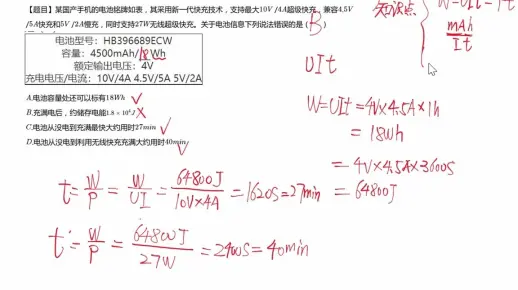 【题目】某国产手机的电池铭牌如表,其采用新一代快充技术,支持最大10V/4A超级快充,兼容4.5V
/5A快充和5V/2A慢充,同时支持27W无线超级快充。关于电池信息下列说法错误的是( B )
电池型号:HB396689ECW
容量:4500mAh/18Wh
额定输出电压:4V
充电电压/电流:10V/4A 4.5V/5A 5V/2A
A.电池容量处还可以标有18Wh ✓
B.充满电后,约储存电能1.8×10⁴J ✗
C.电池从没电到充满最快大约用时27min ✓
D.电池从没电到利用无线快充充满大约用时40min ✓
知识点
W=UIt
mAh
It
UIt
W=UIt=4V×4.5A×1h
=18Wh
=4V×4.5A×3600S
=64800J
t=W/P=W/UI=64800J/10V×4A=1620S=27min
t=W/P=64800J/27W=2400S=40min